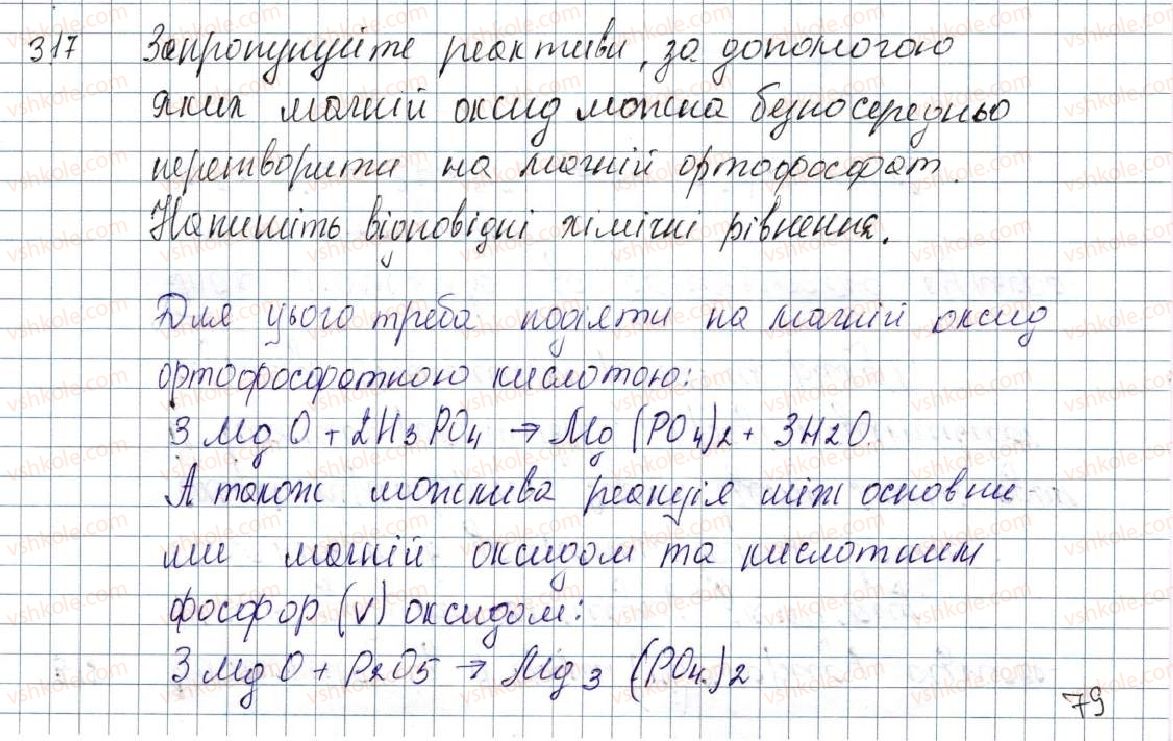 317 Запропонуйте реактиви, за допомогою
яких магній оксид можна безпосередньо
перетворити на магній ортофосфат.
Напишіть відповідні хімічні рівняння.
Для цього треба подіяти на магній оксид
ортофосфатною кислотою:
3 MgO + 2H3PO4 → Mg (PO4)2 + 3H2O.
А також можлива реакція між основни-
ми магній оксидом та кислотним
фосфор (v) оксидом:
3 MgO + P2O5 → Mg3 (PO4)2
79